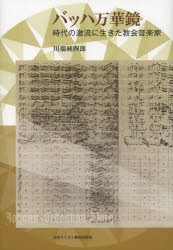 バッハ万華鏡
時代の激流に生きた教会音楽家
川端純四郎
Johann Sebastian Bach
日本キリスト教団出版局